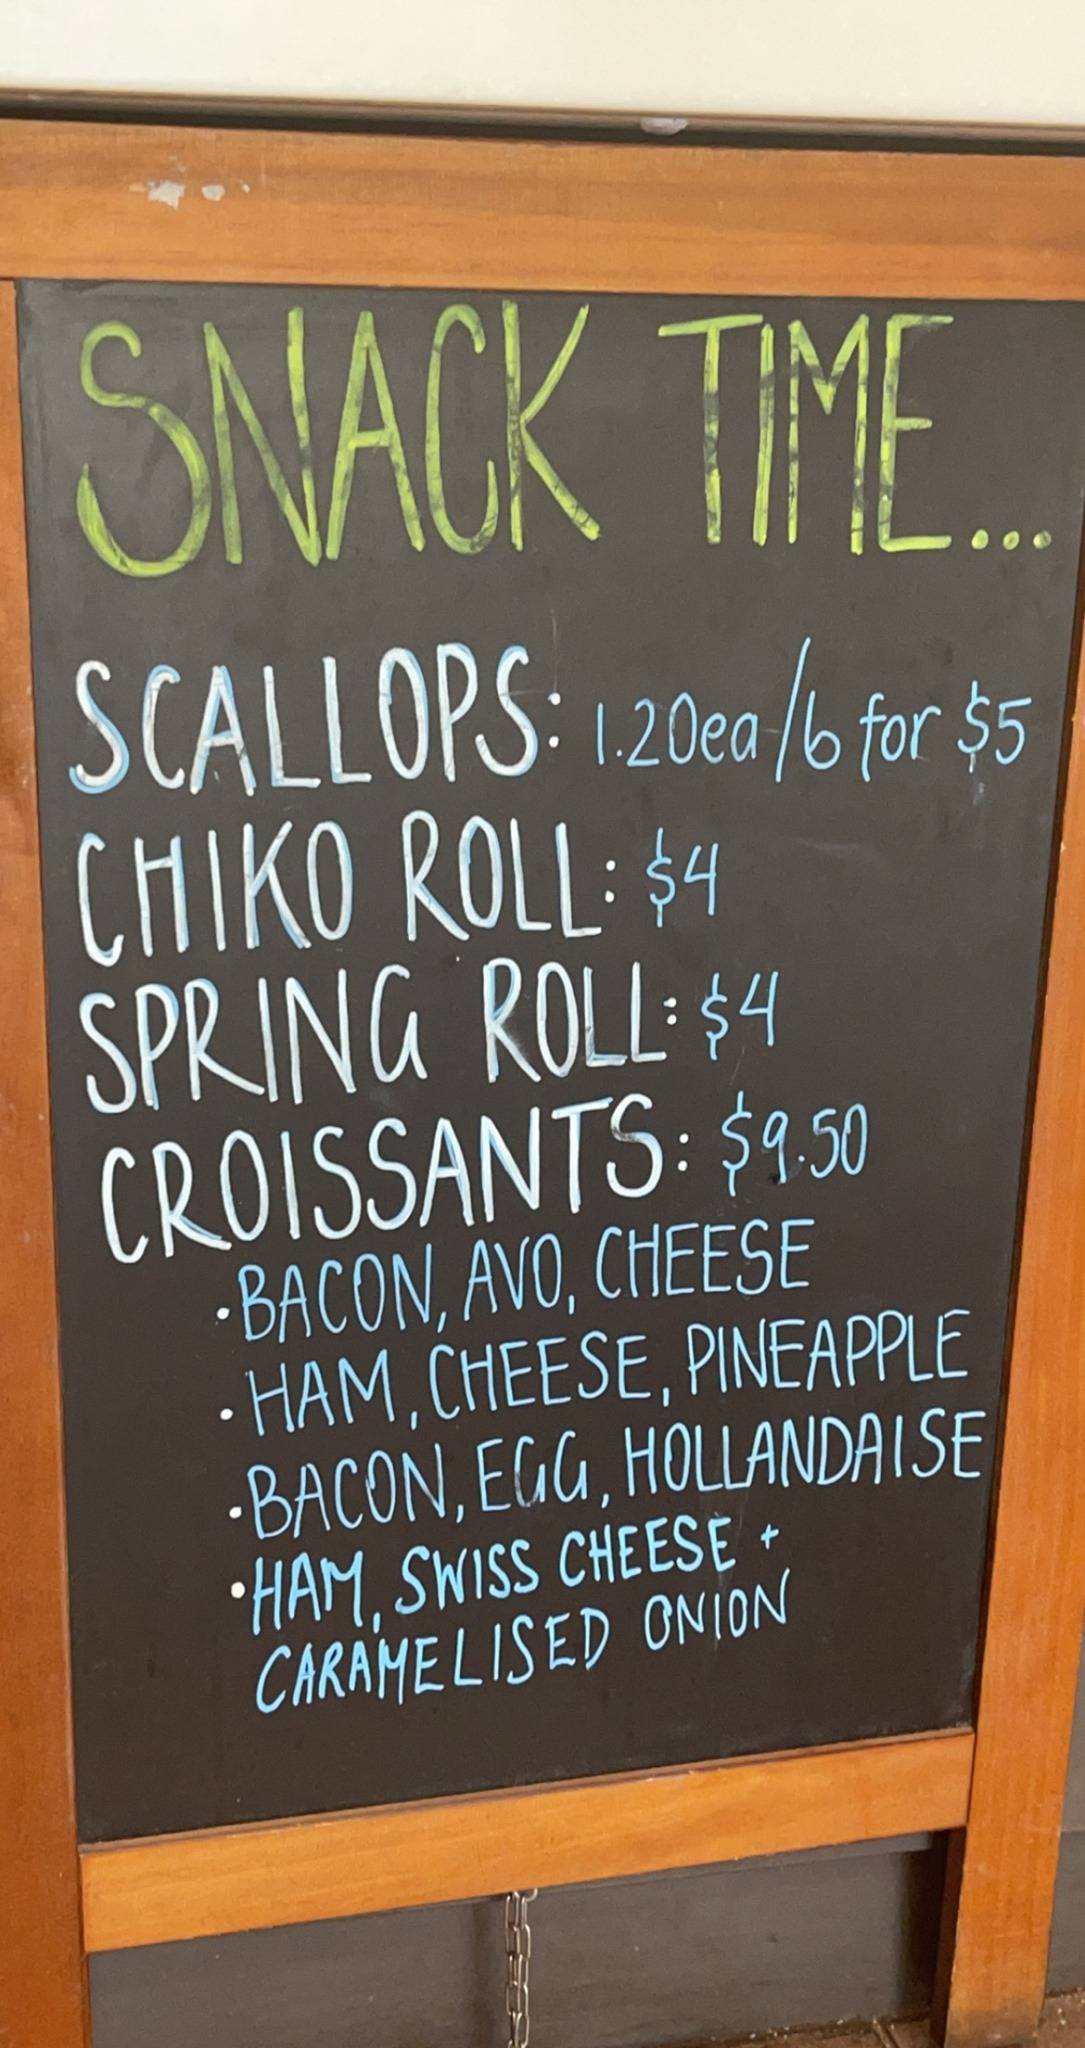 SNACK TIME...
SCALLOPS: 1.20ea/6 for $5
CHIKO ROLL: $4
SPRING ROLL: $4
CROISSANTS: $9.50
·BACON, AVO, CHEESE
·HAM, CHEESE, PINEAPPLE
·BACON, EGG, HOLLANDAISE
·HAM, SWISS CHEESE +
CARAMELISED ONION